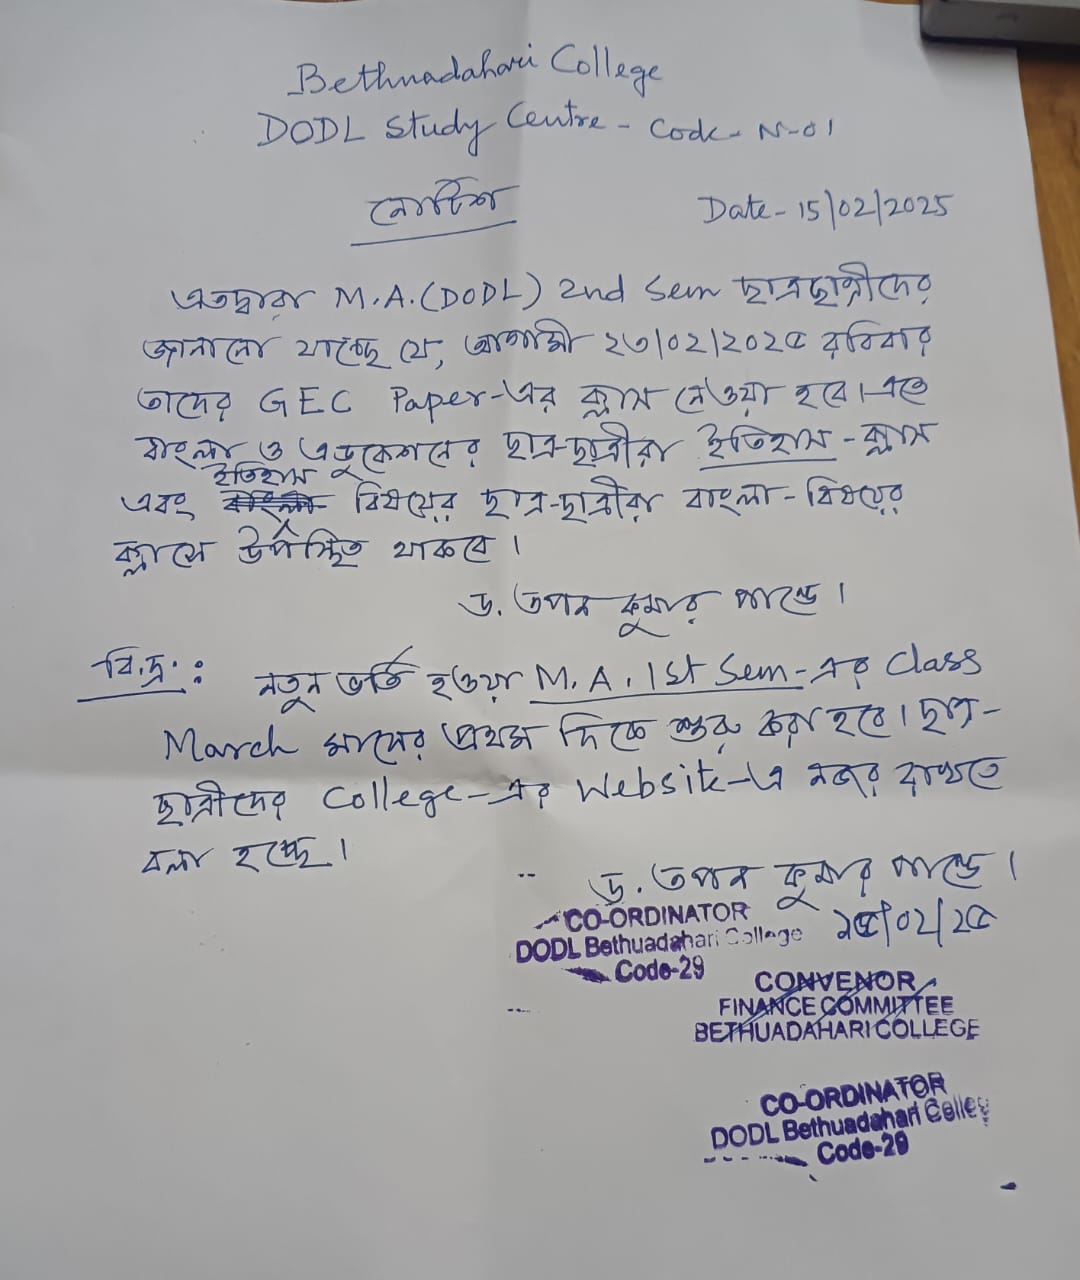 Bethuadahari College
DODL Study Centre - Code - N-01
নোটিশ
Date - 15/02/2025
এতদ্বারা M.A.(DODL) 2nd Sem ছাত্রছাত্রীদের
জানানো যাচ্ছে যে, আগামী ২৩/০২/২০২৫ রবিবার
তাদের GEC Paper-এর ক্লাস নেওয়া হবে। এতে
বাংলা ও এডুকেশনের ছাত্র-ছাত্রীরা ইতিহাস - ক্লাস
ইতিহাস
এবং বাংলা বিষয়ের ছাত্র-ছাত্রীরা বাংলা - বিষয়ের
ক্লাসে উপস্থিত থাকবে।
ড. তপন কুমার পান্ডে।
বি.দ্র. : নতুন ভর্তি হওয়া M.A. 1st Sem-এর Class
March মাসের প্রথম দিকে শুরু করা হবে। ছাত্র-
ছাত্রীদের College-এর Website-এ নজর রাখতে
বলা হচ্ছে।
ড. তপন কুমার পান্ডে।
১৫/০২/২৫
CO-ORDINATOR
DODL Bethuadahari College
Code-29
CONVENOR
FINANCE COMMITTEE
BETHUADAHARI COLLEGE
CO-ORDINATOR
DODL Bethuadahari Colleg
Code-29